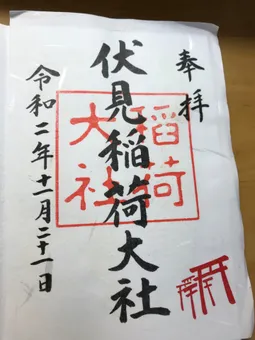 奉拝
伏見稲荷大社
稲荷
大社
令和二年十一月二十一日